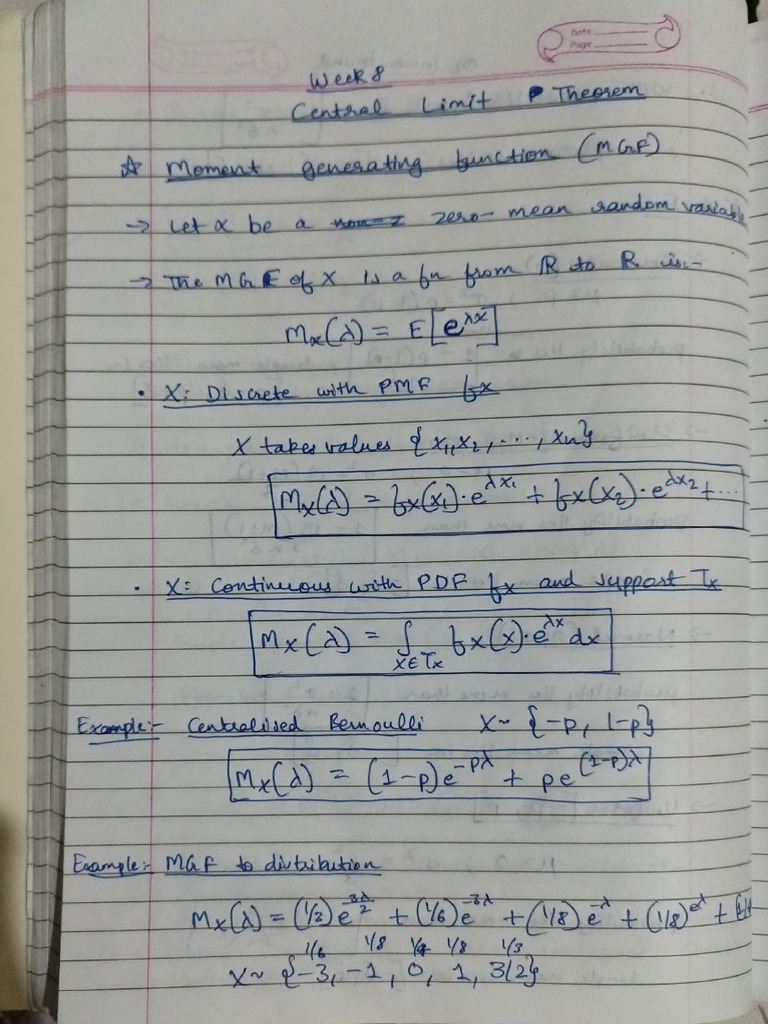 Date
Page
Week 8
Central Limit Theorem
☆ Moment generating function (MGF)
→ Let x be a zero-mean random variable
→ The MGF of X is a fn from ℝ to ℝ is:-
Mx(λ) = E[e^λx]
• X: Discrete with PMF fx
X takes values {x₁,x₂,...,xn}
Mx(λ) = fx(x₁)·e^λx₁ + fx(x₂)·e^λx₂ + ...
• X: Continuous with PDF fx and support Tx
Mx(λ) = ∫ fx(x)·e^λx dx
x∈Tx
Example:- Centralised Bernoulli X~ {-p, 1-p}
Mx(λ) = (1-p)e^-pλ + pe^(1-p)λ
Example:- MGF to distribution
Mx(λ) = (1/3)e^3λ/2 + (1/6)e^-3λ + (1/8)e^-λ + (1/8)e^λ +
1/6 1/8 1/4 1/8 1/3
X~ {-3, -1, 0, 1, 3/2}